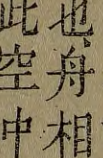 也舟相
此空中